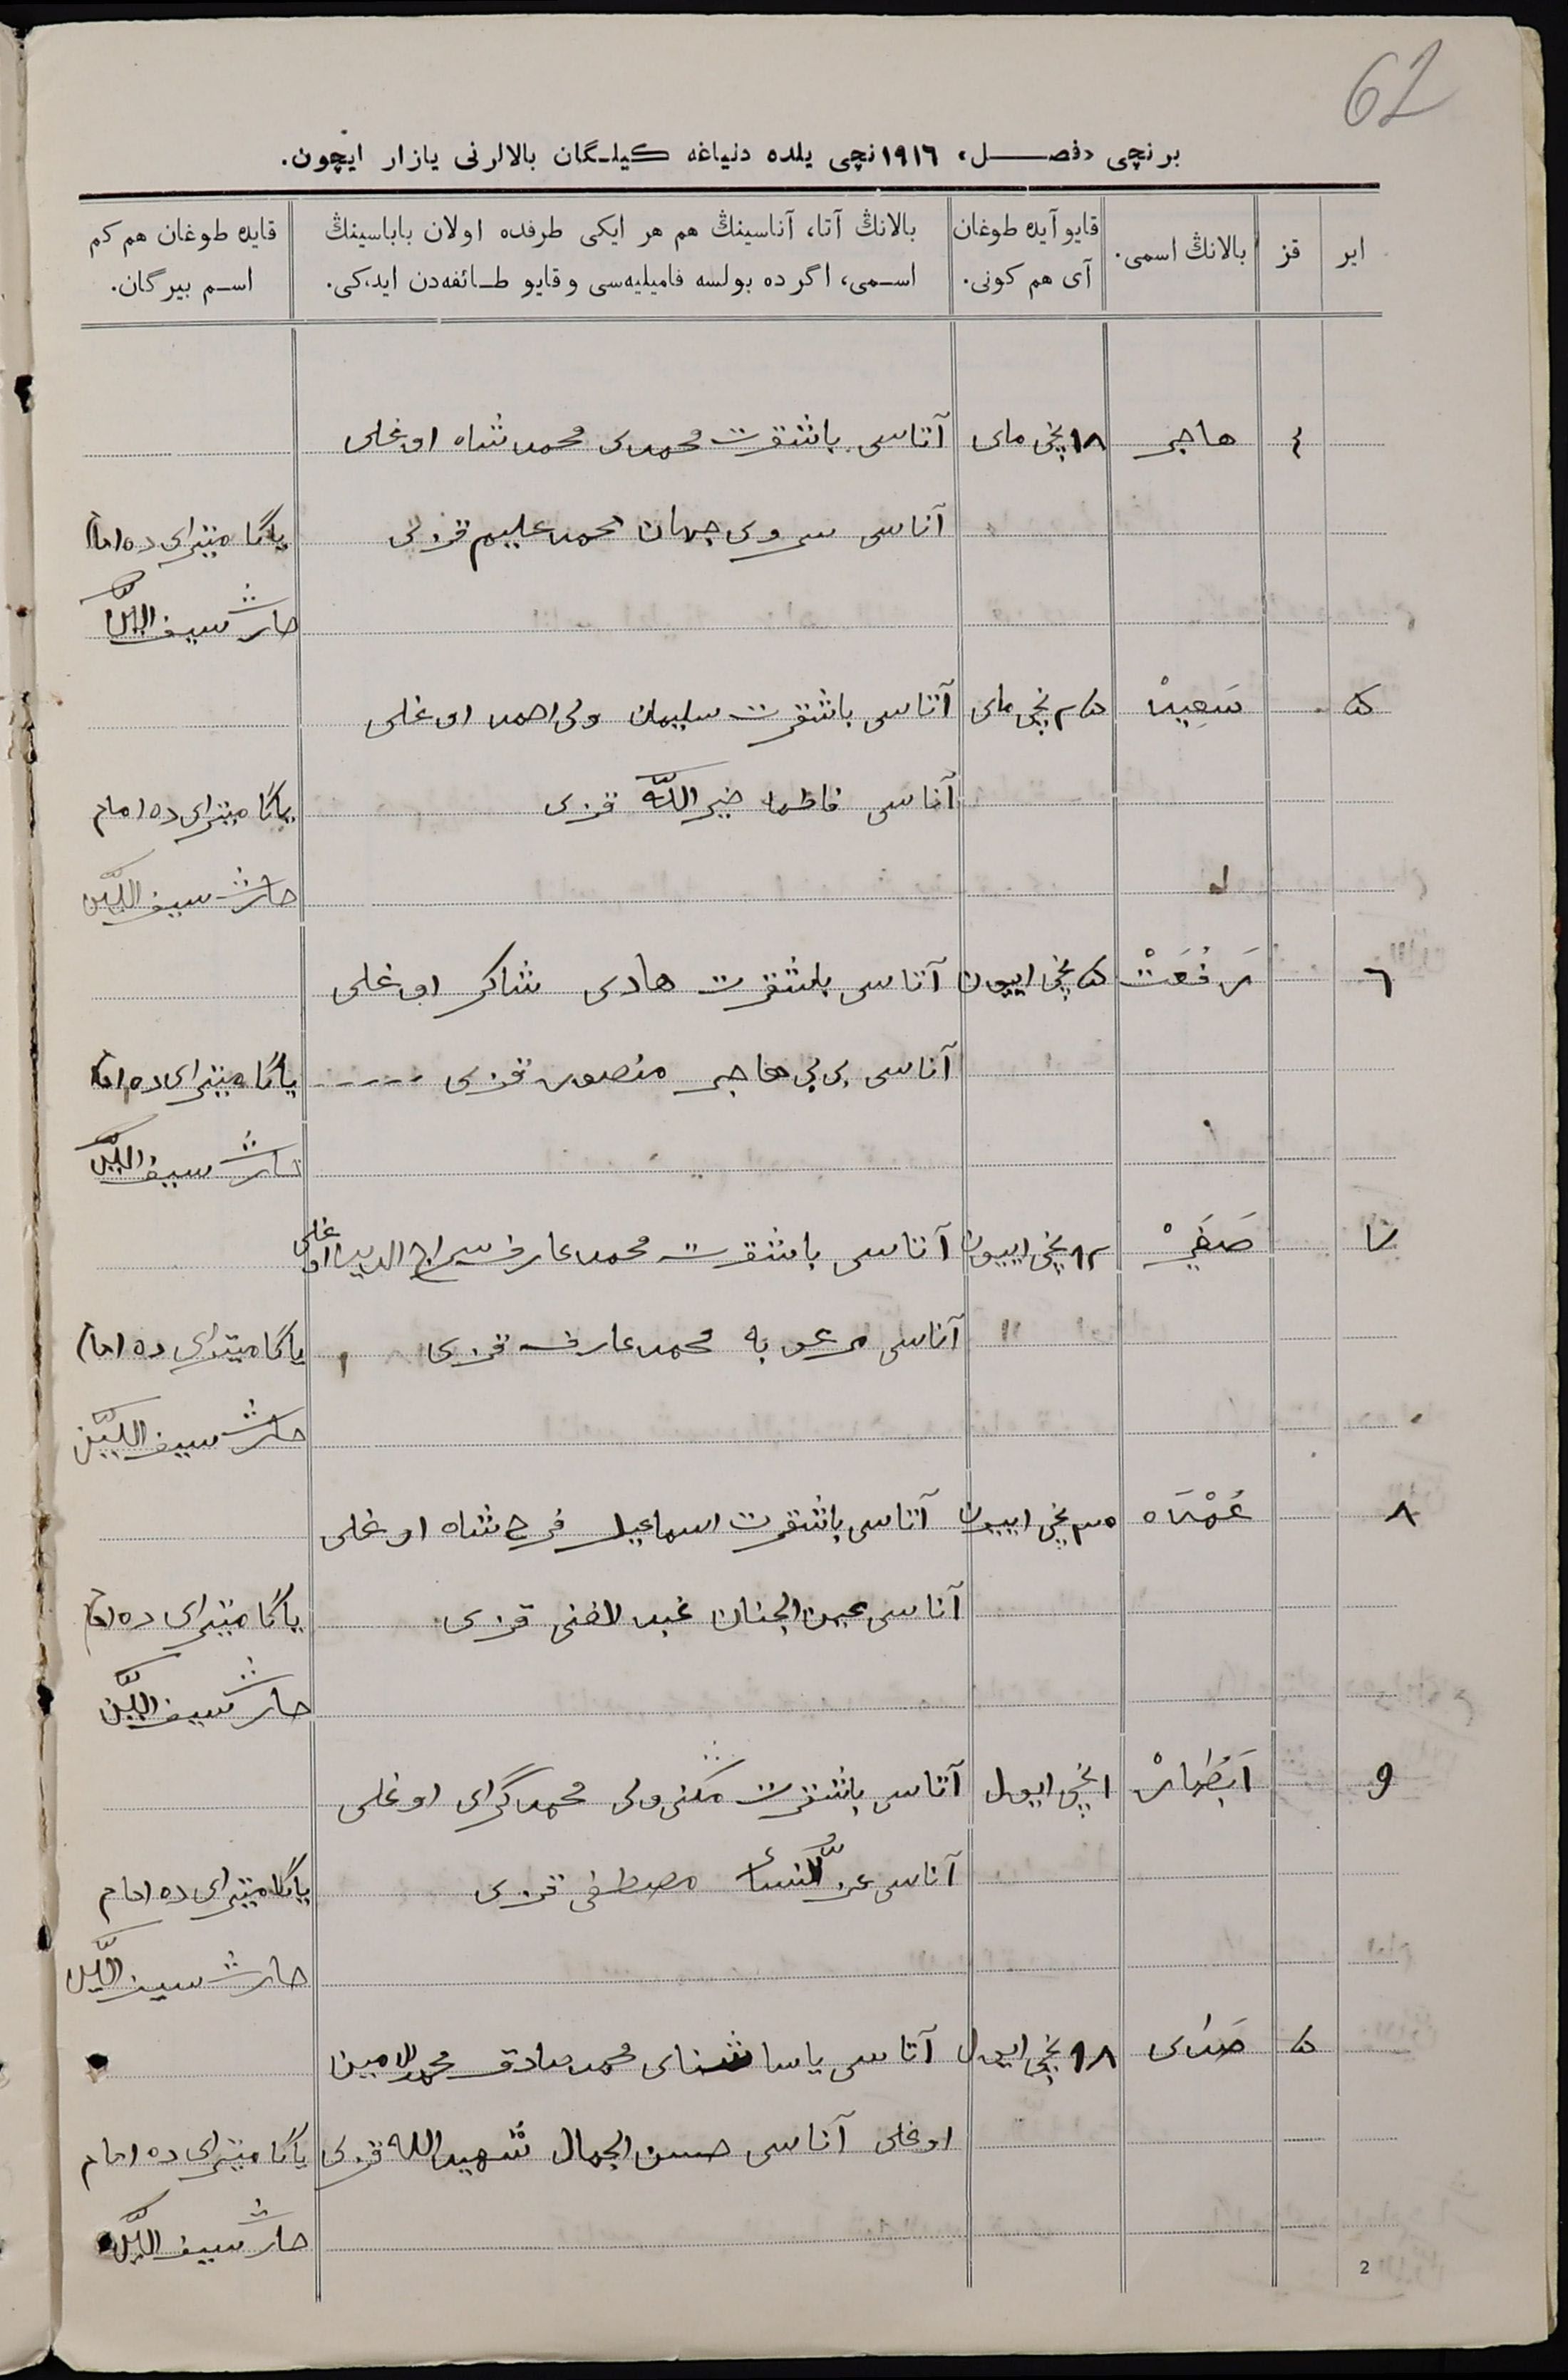 62
برنچی «فصل» ١٩١٦نچی یلده دنیاغه کیلگان بالالرنی یازار ایچون.
ایر
قز
بالانڭ اسمی.
قایو آیده طوغان آی هم کونی.
بالانڭ آتا، آناسینڭ هم هر ایکی طرفده اولان باباسینڭ اسمی، اگر ده بولسه فامیلیه‌سی و قایو طائفه‌دن ایدکی.
قایده طوغان هم کم اسم بیرگان.
٤ هاجر ١٨ نچی مای آتاسی باشقرت محمدی محمد شاه اوغلی
آناسی سروی جهان محمد علیم قزی یاڭا میترای ده امام
حارث سیف الدین
٥ سَعِیدْ ٢٥ نچی مای آتاسی باشقرت سلیمان ولی احمد اوغلی
آناسی فاطما خیر اللّه قزی یاڭا میترای ده امام
حارث سیف الدّین
٦ رفعَتْ ٥ نچی اییون آتاسی باشقرت هادی شاکر اوغلی
آناسی بی بی هاجر منصور قزی یاڭا میترای ده امام
حارث سیف الدّین
٧ ١٢ نچی اییون آتاسی باشقرت محمد عارف سراج الدین اوغلی
آناسی مرغوبه محمد عارف قزی یاڭا میترای ده امام
حارث سیف الدّین
٨ ٣٠ نچی اییون آتاسی باشقرت اسماعیل فرح شاه اوغلی
آناسی عین الجنان عبد الغنی قزی یاڭا میترای ده امام
حارث سیف الدّین
٩ ١ نچی ایول آتاسی باشقرت محمد گرای اوغلی
آناسی عزّ النساء مصطفی قزی یاڭا میترای ده امام
حارث سیف الدّین
٥ ١٨ نچی ایول آتاسی یاساشنای محمد صادق محمد الامین
اوغلی آناسی حسن الجمال شهید الله قزی یاڭا میترای ده امام
حارث سیف الدّین
2